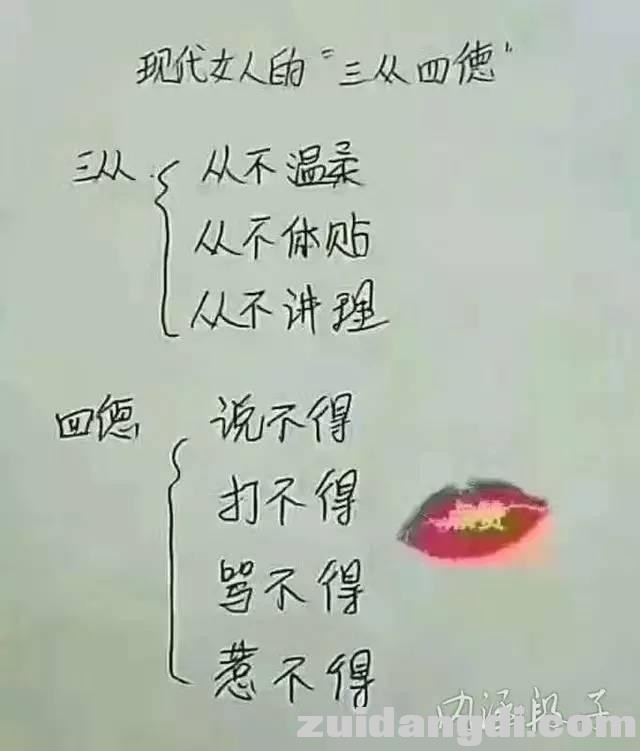 现代女人的“三从四德”
三从 从不温柔
从不体贴
从不讲理
四德 说不得
打不得
骂不得
惹不得
内涵段子
zuidangdi.com